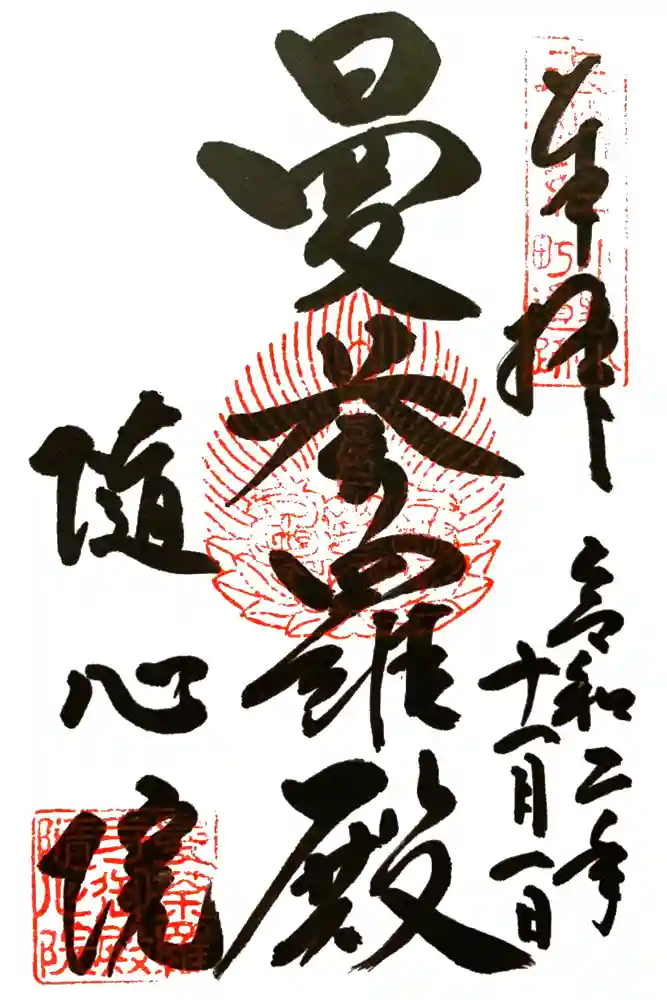 奉拝
令和二年
十一月一日
曼荼羅殿
随心院